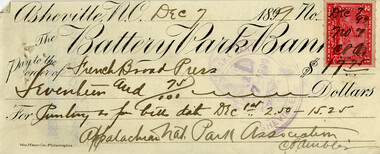 Asheville, N.C. Dec 7 1899 No.
Dec 7
99
The Battery Park Bank
Pay to the order of French Broad Press $17.75
Seventeen and 75/100 Dollars
For Printing as per bill date Dec 1st 2.50 - 15.25
Appalachian Nat. Park Association